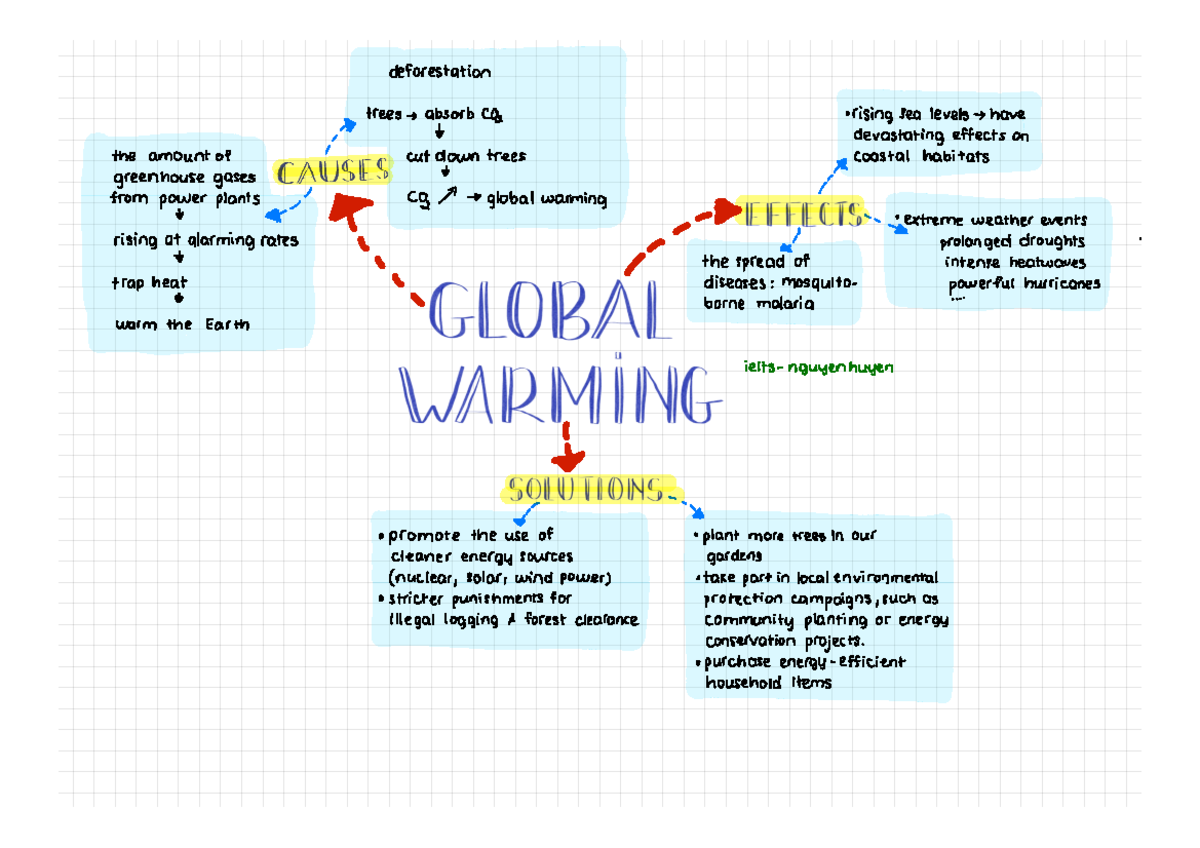 deforestation
trees → absorb CO₂
↓
cut down trees
↓
CO₂ ↗ → global warming
CAUSES
the amount of
greenhouse gases
from power plants
↓
rising at alarming rates
↓
trap heat
↓
warm the Earth
• rising sea levels → have
devastating effects on
coastal habitats
EFFECTS
• extreme weather events
prolonged droughts
intense heatwaves
powerful hurricanes
....
the spread of
diseases: mosquito-
borne malaria
GLOBAL
WARMING
ielts-nguyenhuyen
SOLUTIONS
• promote the use of
cleaner energy sources
(nuclear, solar, wind power)
• stricter punishments for
illegal logging & forest clearance
• plant more trees in our
gardens
• take part in local environmental
protection campaigns, such as
community planting or energy
conservation projects.
• purchase energy-efficient
household items